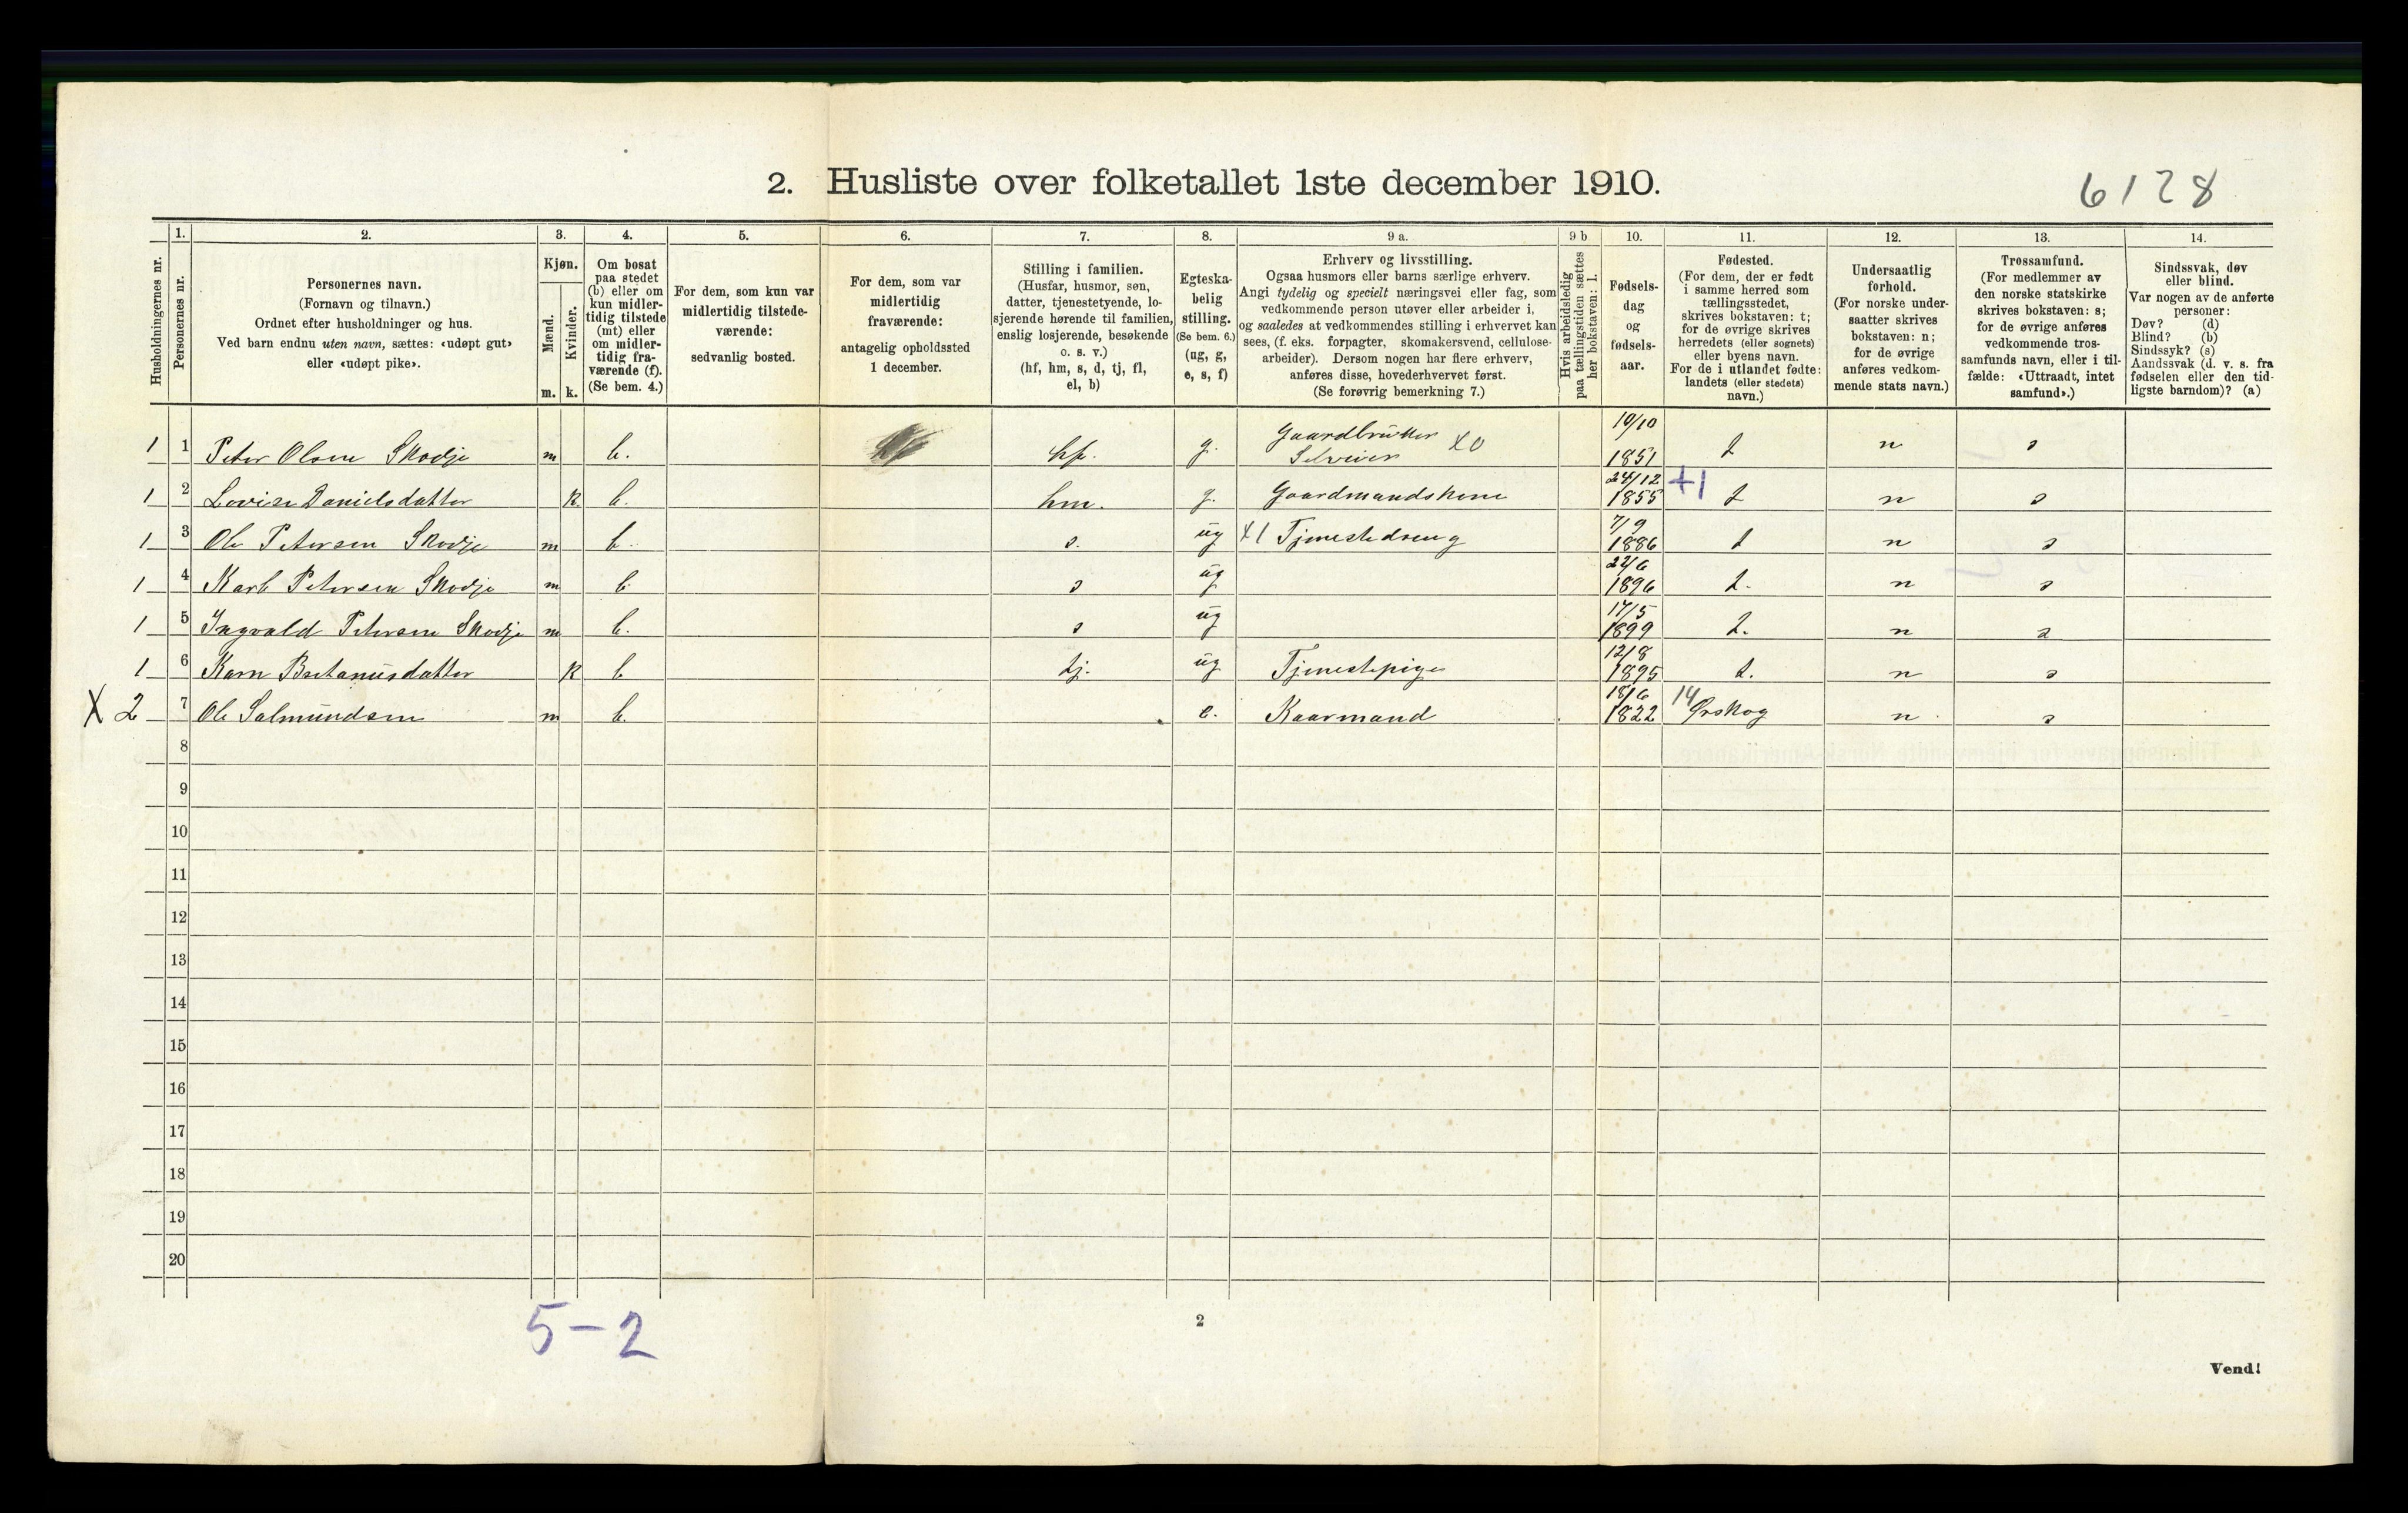 2. Husliste over folketallet 1ste december 1910.
6128
Husholdningernes nr.
1.
Personernes nr.
2.
Personernes navn.
(Fornavn og tilnavn.)
Ordnet efter husholdninger og hus.
Ved barn endnu uten navn, sættes: «udøpt gut»
eller «udøpt pike».
3.
Kjøn.
Mænd.
Kvinder.
m. k.
4.
Om bosat
paa stedet
(b) eller om
kun midler-
tidig tilstede
(mt) eller
om midler-
tidig fra-
værende (f).
(Se bem. 4.)
5.
For dem, som kun var
midlertidig tilstede-
værende:
sedvanlig bosted.
6.
For dem, som var
midlertidig
fraværende:
antagelig opholdssted
1 december.
7.
Stilling i familien.
(Husfar, husmor, søn,
datter, tjenestetyende, lo-
sjerende hørende til familien,
enslig losjerende, besøkende
o. s. v.)
(hf, hm, s, d, tj, fl,
el, b)
8.
Egteska-
belig
stilling.
(Se bem. 6.)
(ug, g,
e, s, f)
9 a.
Erhverv og livsstilling.
Ogsaa husmors eller barns særlige erhverv.
Angi tydelig og specielt næringsvei eller fag, som
vedkommende person utøver eller arbeider i,
og saaledes at vedkommendes stilling i erhvervet kan
sees, (f. eks. forpagter, skomakersvend, cellulose-
arbeider). Dersom nogen har flere erhverv,
anføres disse, hovederhvervet først.
(Se forøvrig bemerkning 7.)
9 b
Hvis arbeidsledig
paa tællingstiden sættes
her bokstaven: l.
10.
Fødsels-
dag
og
fødsels-
aar.
11.
Fødested.
(For dem, der er født
i samme herred som
tællingsstedet,
skrives bokstaven: t;
for de øvrige skrives
herredets (eller sognets)
eller byens navn.
For de i utlandet fødte:
landets (eller stedets)
navn.)
12.
Undersaatlig
forhold.
(For norske under-
saatter skrives
bokstaven: n;
for de øvrige
anføres vedkom-
mende stats navn.)
13.
Trossamfund.
(For medlemmer av
den norske statskirke
skrives bokstaven: s;
for de øvrige anføres
vedkommende tros-
samfunds navn, eller i til-
fælde: «Uttraadt, intet
samfund».)
14.
Sindssvak, døv
eller blind.
Var nogen av de anførte
personer:
Døv? (d)
Blind? (b)
Sindssyk? (s)
Aandssvak (d. v. s. fra
fødselen eller den tid-
ligste barndom)? (a)
1 1 Peter Olsen Skodje m b. hf. g. Gaardbruker Selveier X0 10/10 1851 t n s
1 2 Lovise Danielsdatter k b. hm. g. Gaardmandskone 24/12 1855 +1 t n s
1 3 Ole Petersen Skodje m b. s. ug X1 Tjenestedreng 7/9 1886 t n s
1 4 Karl Petersen Skodje m b s ug 22/6 1896 t. n s
1 5 Ingvald Petersen Skodje m b. s ug 17/5 1899 t. n s
1 6 Karn k b tj. ug Tjenestepige 12/8 1895 t. n s
X 2 7 Ole Salmundsen m b. e. Kaarmand 18/6 1822 14 Ørskog n s
8
9
10
11
12
13
14
15
16
17
18
19
20
5-2
2
Vend!